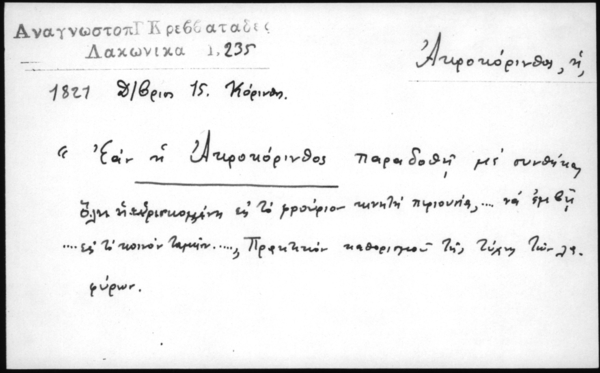 ΑναγνωστοπΓ Κρεββαταδες
Λακωνικα 1, 235
Ἀκροκόρινθος, ἡ,
1821 Δ/βριος 15. Κόρινθος.
« Ἐάν ἡ Ἀκροκόρινθος παραδοθῇ μέ συνθήκας
ὅλη ἡ εὑρισκομένη εἰς τό φρούριον κινητή περιουσία, ... νά ἐμβῇ
.... εἰς τό κοινόν ταμεῖον ....., Πρακτικόν καθορισμοῦ τῆς τύχης τῶν λα-
φύρων.